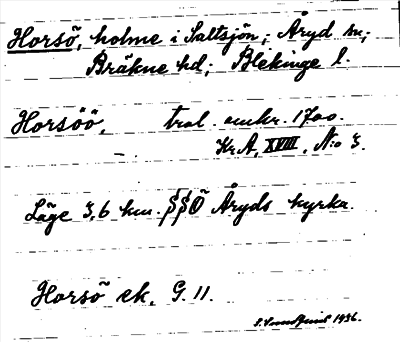 Horsö, holme i Saltsjön; Åryd sn;
Bräkne hd; Blekinge l.
Horsöö, trol. omkr. 1700.
Kr.A, XVIII, No 3.
Läge 3,6 km. SSÖ Åryds kyrka.
Horsö ek. G. 11.
1936.